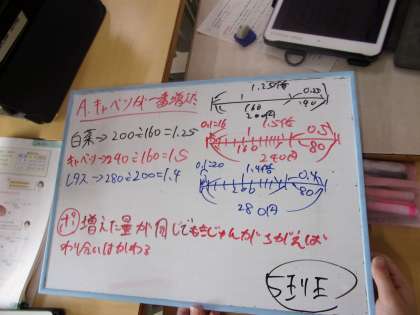 A.キャベツが一番増えた
白菜→200÷160=1.25
キャベツ→240÷160=1.5
レタス→280÷200=1.4
1.25倍
0.25
160
40
200円
0.1=16
1
1.5倍
0.5
160
80
240円
0.1=20
1
1.4倍
0.4
80
280円
ポ 増えた量が同じでもきじゅんがちがえば
わり合いはかわる